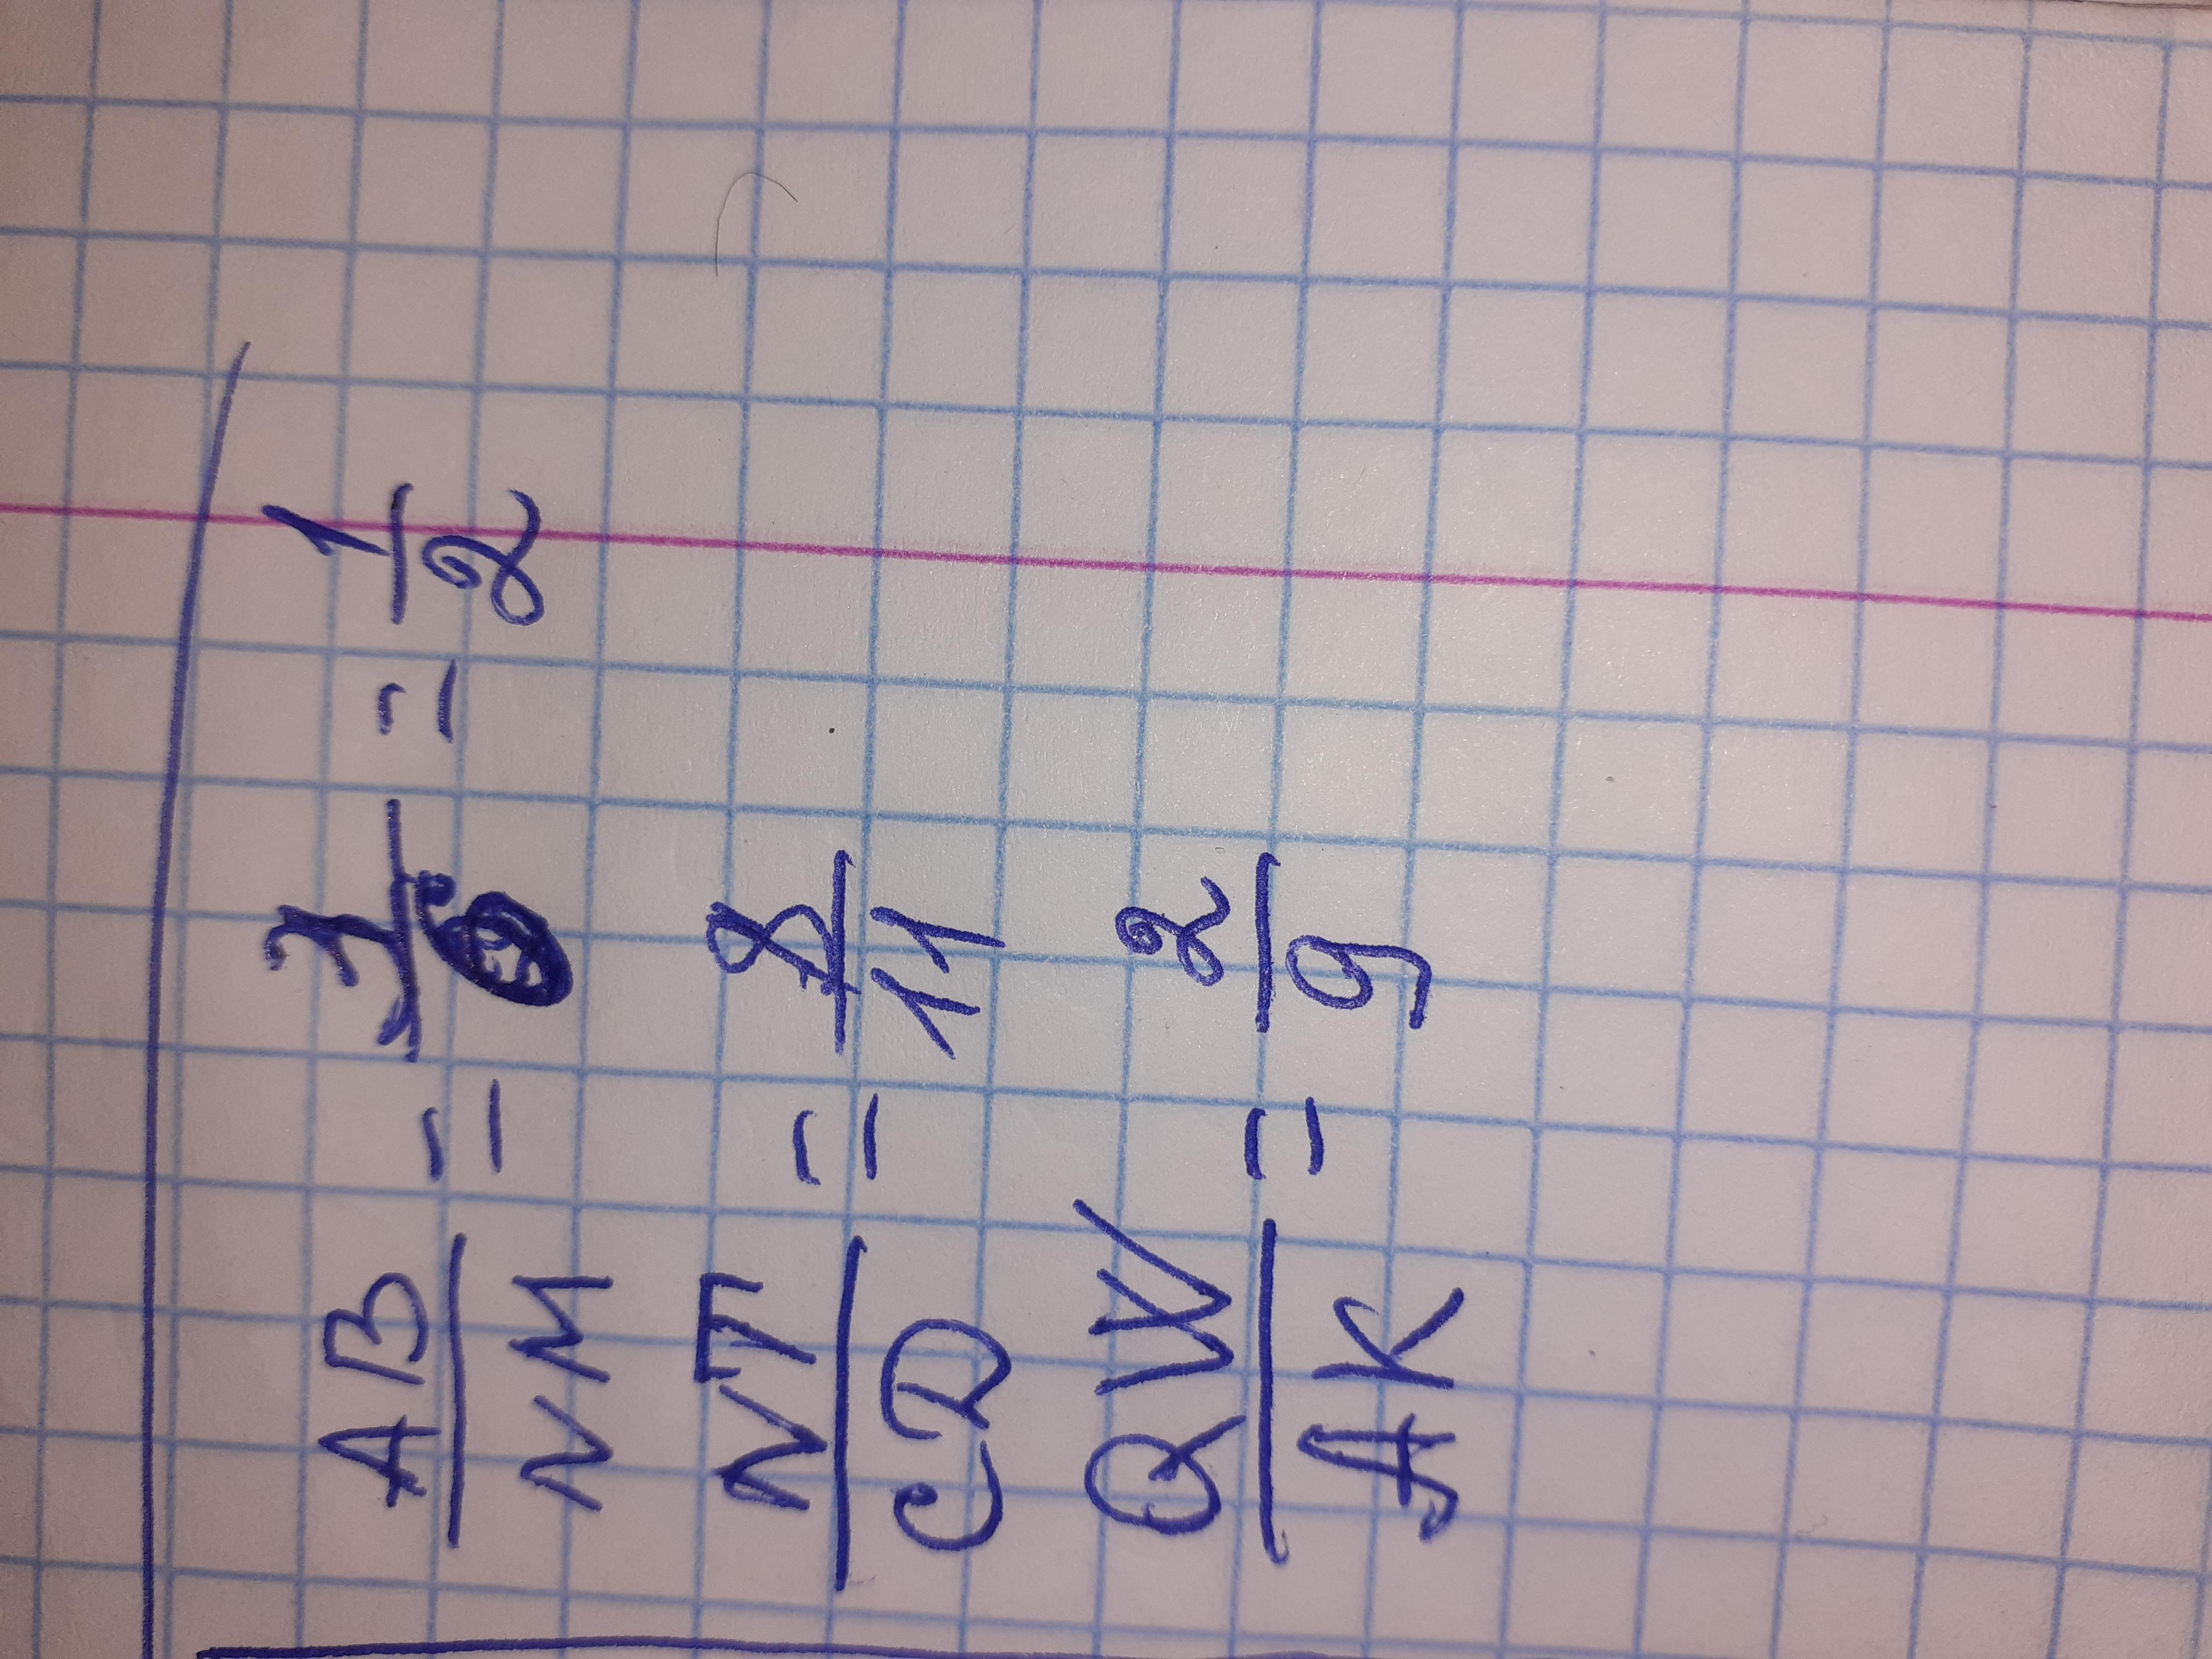 AB
NM
= 3
= 1
2
NF
CD
=
11
QW
AK
= 2
9